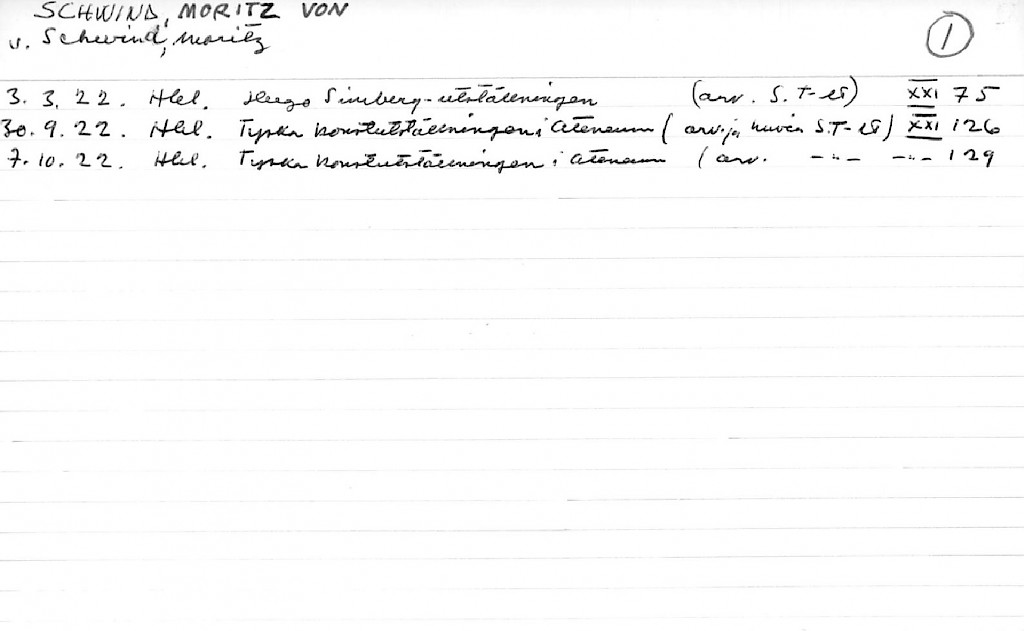 SCHWIND, MORITZ VON
v. Schwind, Moritz
1
3. 3. 22. Hbl. Hugo Simberg-utställningen (arv. S. T-ll) XXI 75
30. 9. 22. Hbl. Tyska konstutställningen i Ateneum (arv. ja kuvia S.T-ll) XXI 126
7. 10. 22. Hbl. Tyska konstutställningen i Ateneum (arv. -"- -"- 129